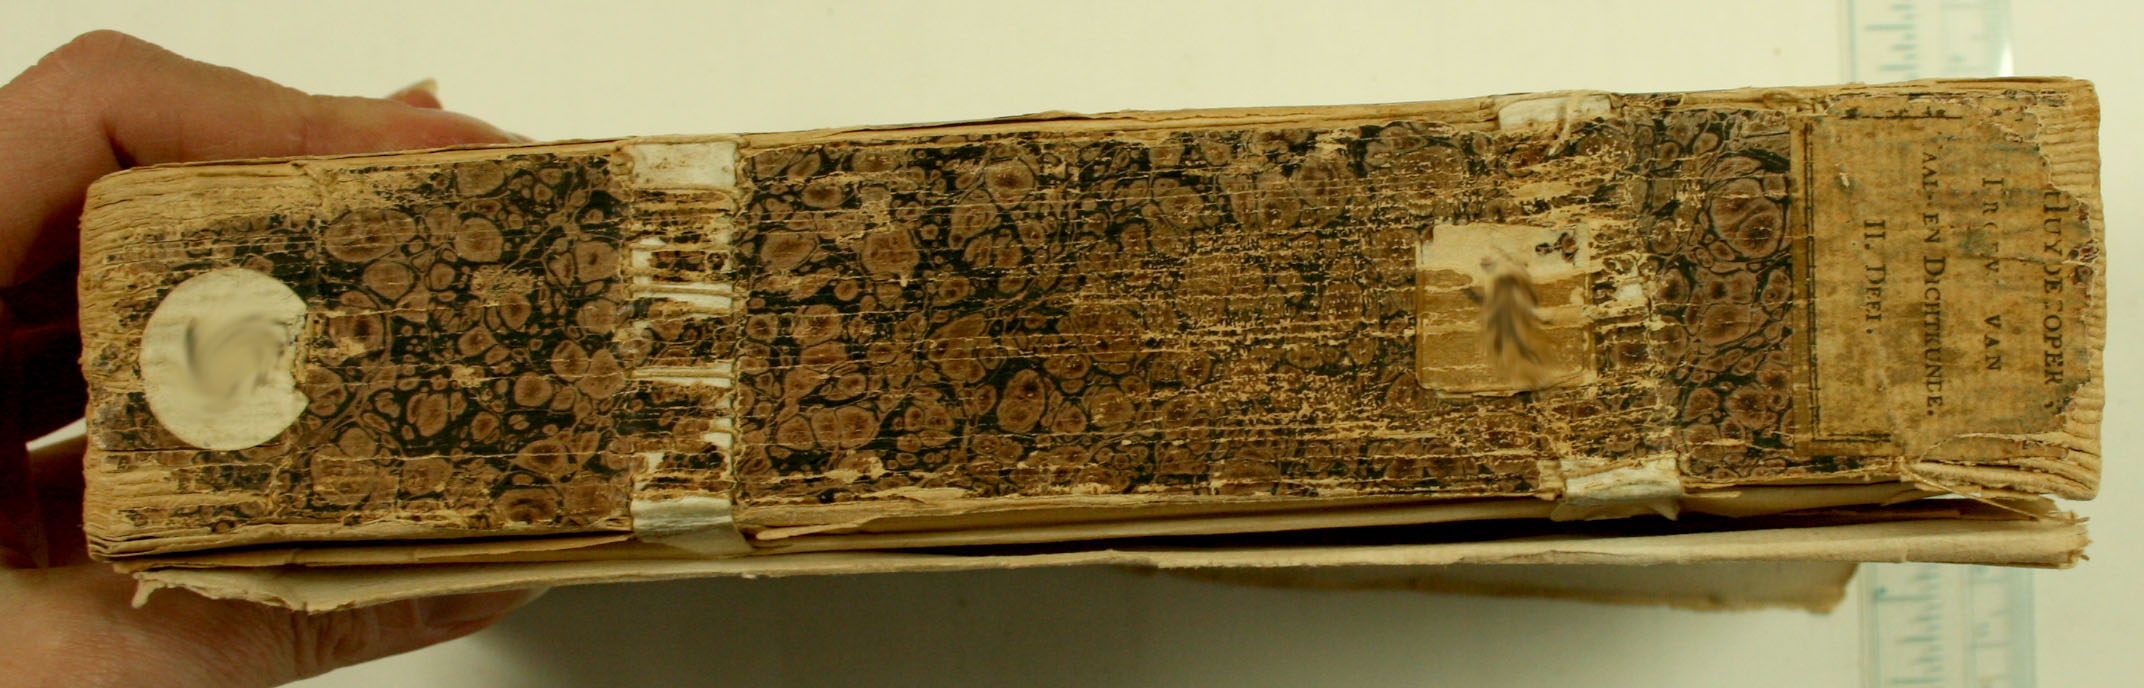 HUYDECOPER,
PROEV. VAN
TAAL- EN DICHTKUNDE.
II. DEEL.